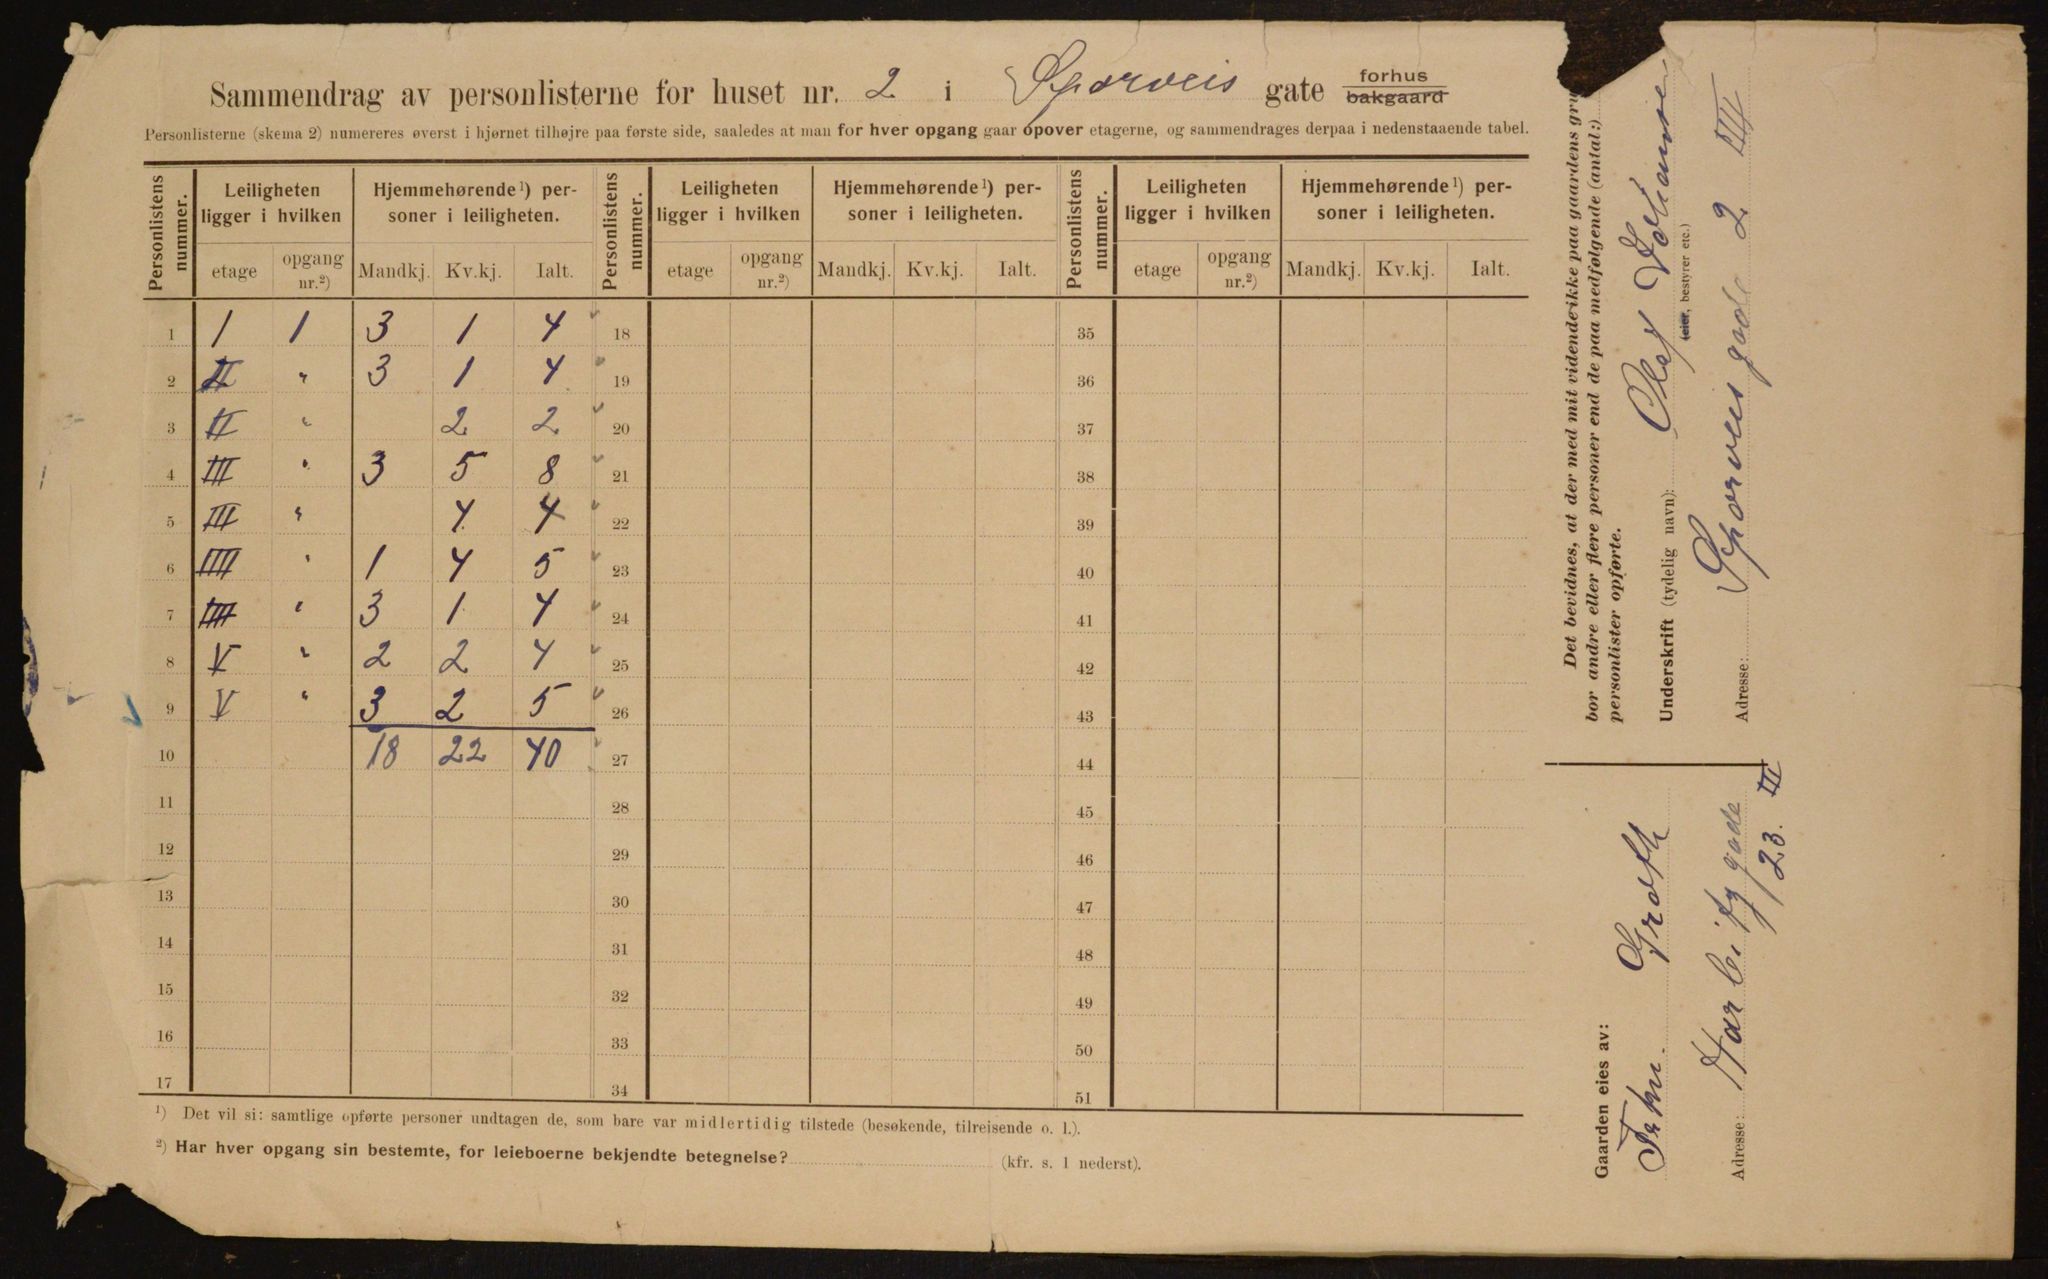 Sammendrag av personlisterne for huset nr. 2 i Sporveis gate forhus bakgaard
Personlisterne (skema 2) numereres øverst i hjørnet tilhøjre paa første side, saaledes at man for hver opgang gaar opover etagerne, og sammendrages derpaa i nedenstaaende tabel.
Personlistens nummer. Leiligheten ligger i hvilken Hjemmehørende ¹) personer i leiligheten. Personlistens nummer. Leiligheten ligger i hvilken Hjemmehørende ¹) personer i leiligheten. Personlistens nummer. Leiligheten ligger i hvilken Hjemmehørende ¹) personer i leiligheten.
etage opgang nr.²) Mandkj. Kv.kj. Ialt. etage opgang nr.²) Mandkj. Kv.kj. Ialt. etage opgang nr.²) Mandkj. Kv.kj. Ialt.
1 I 1 3 1 4 18 35
2 II " 3 1 4 19 36
3 II " 2 2 20 37
4 III " 3 5 8 21 38
5 III " 4 4 22 39
6 IIII " 1 4 5 23 40
7 IIII " 3 1 4 24 41
8 V " 2 2 4 25 42
9 V " 3 2 5 26 43
10 18 22 40 27 44
11 28 45
12 29 46
13 30 47
14 31 48
15 32 49
16 33 50
17 34 51
¹) Det vil si: samtlige opførte personer undtagen de, som bare var midlertidig tilstede (besøkende, tilreisende o. l.).
²) Har hver opgang sin bestemte, for leieboerne bekjendte betegnelse? (kfr. s. 1 nederst).
Det bevidnes, at der med mit vidende ikke paa gaardens gru
bor andre eller flere personer end de paa medfølgende (antal:)
personlister opførte.
Underskrift (tydelig navn): Olaf Johanse
(eier, bestyrer etc.)
Adresse: Sporveis gade 2 III
Gaarden eies av:
Groth
Adresse: gade
23. III